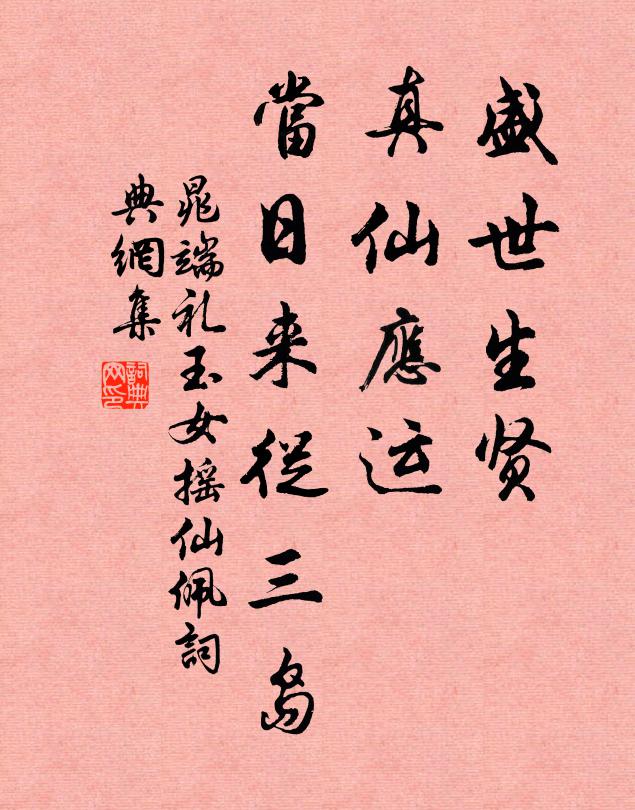 盛世生贤
真仙應运
當日来從三岛
晁端礼玉女摇仙佩詞
典網集
詞典网印